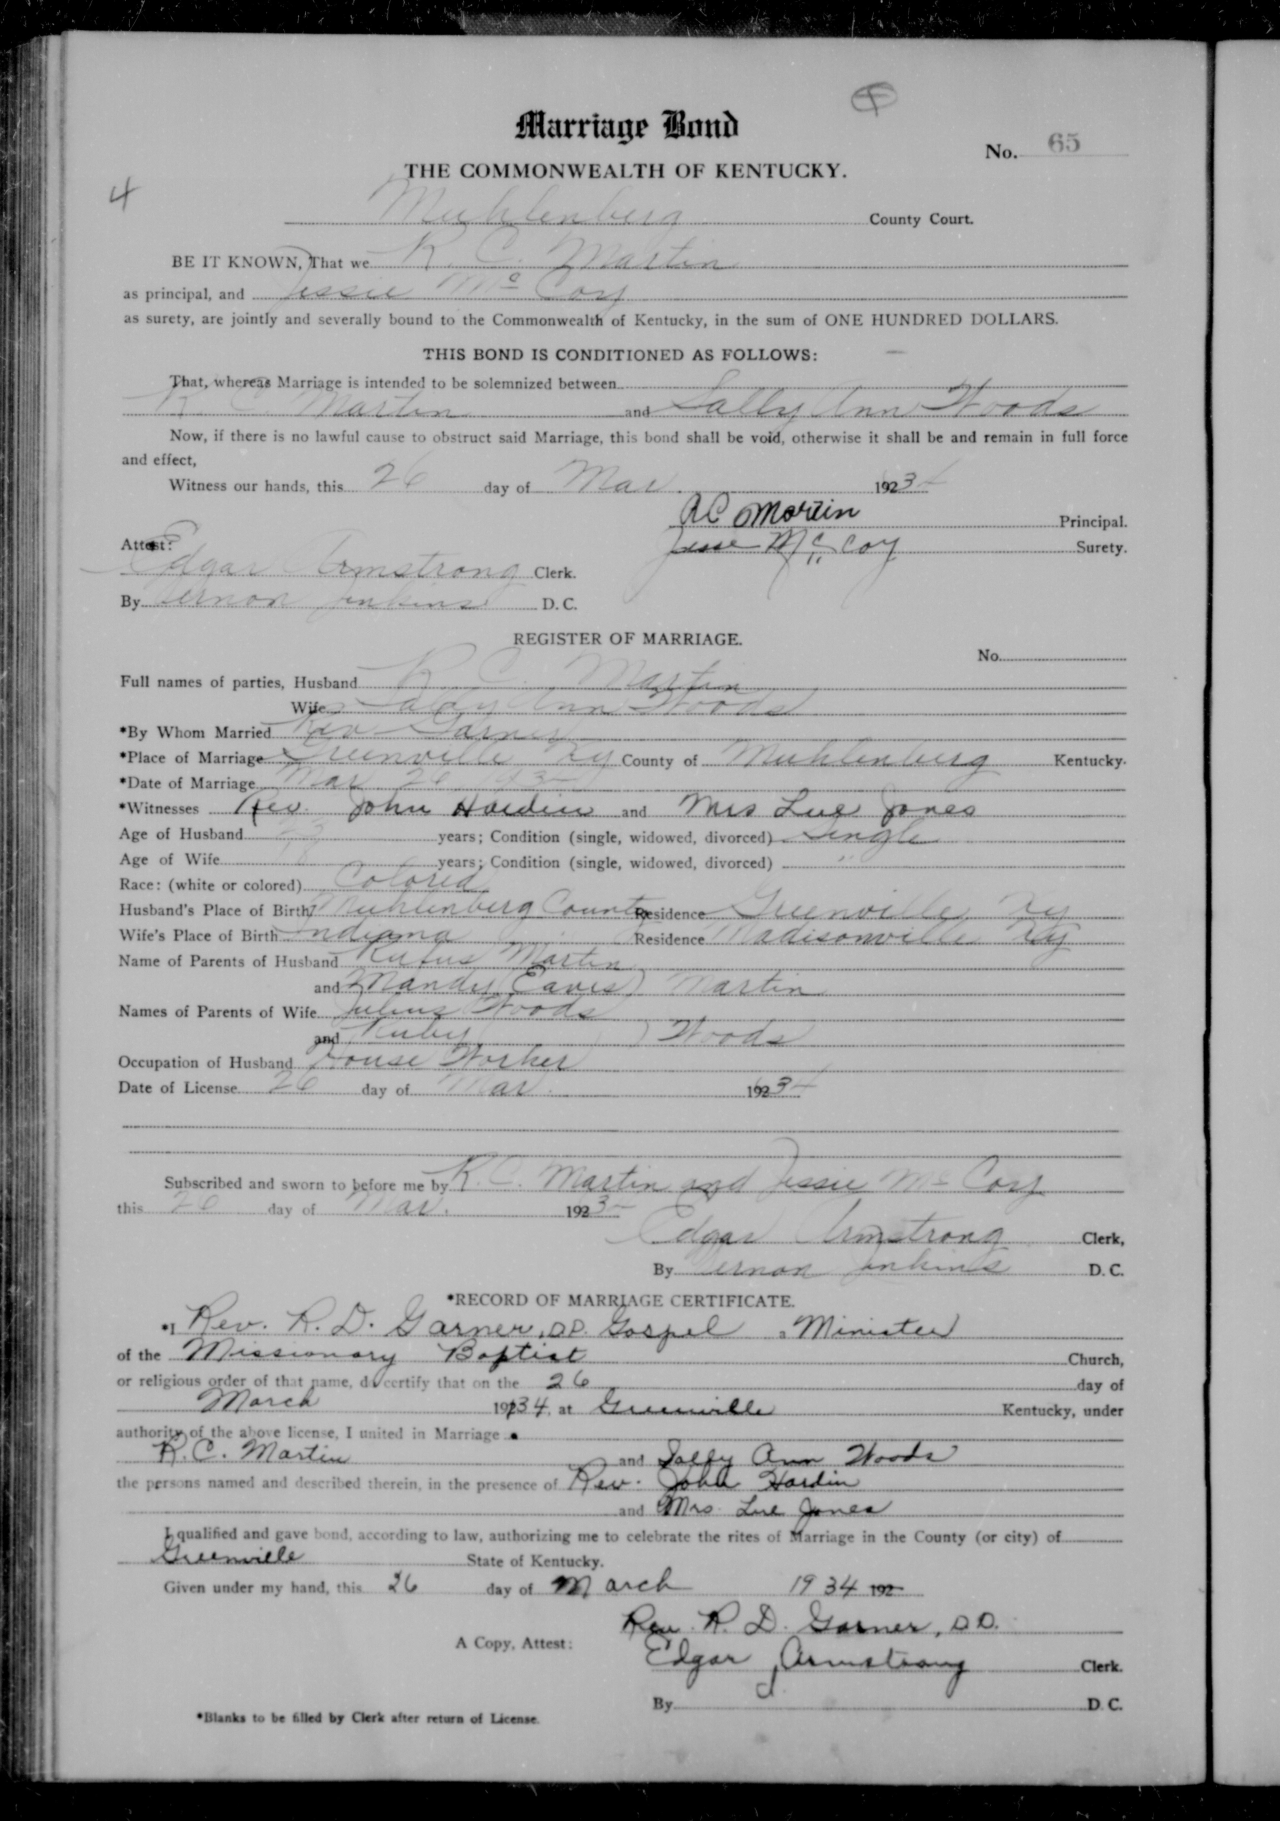 Marriage Bond
No. 65
THE COMMONWEALTH OF KENTUCKY.
4
Muhlenberg County Court.
BE IT KNOWN, That we R. C. Martin
as principal, and Jessie Mc Coy
as surety, are jointly and severally bound to the Commonwealth of Kentucky, in the sum of ONE HUNDRED DOLLARS.
THIS BOND IS CONDITIONED AS FOLLOWS:
That, whereas Marriage is intended to be solemnized between
R. C. Martin and Sally Ann Woods
Now, if there is no lawful cause to obstruct said Marriage, this bond shall be void, otherwise it shall be and remain in full force
and effect,
Witness our hands, this 26 day of Mar. 1934
RC Martin Principal.
Jesse Mc Coy Surety.
Attest:
Edgar Armstrong Clerk.
By Vernon Jenkins D. C.
REGISTER OF MARRIAGE.
No.
Full names of parties, Husband R. C. Martin
Wife Sally Ann Woods
*By Whom Married Rev Garner
*Place of Marriage Greenville Ky County of Muhlenberg Kentucky.
*Date of Marriage Mar 26 193
*Witnesses Rev. John Hardin and Mrs Lue Jones
Age of Husband 23 years; Condition (single, widowed, divorced) Single
Age of Wife 18 years; Condition (single, widowed, divorced) "
Race: (white or colored) Colored
Husband's Place of Birth Muhlenberg County Residence Greenville Ky
Wife's Place of Birth Indiana Residence Madisonville Ky
Name of Parents of Husband Rufus Martin
and Mandy (Eaves) Martin
Names of Parents of Wife Julius Woods
and Ruby ) Woods
Occupation of Husband House Worker
Date of License 26 day of Mar. 1934
Subscribed and sworn to before me by R. C. Martin and Jessie Mc Coy
this 26 day of Mar. 1923
Edgar Armstrong Clerk,
By Vernon Jenkins D. C.
*RECORD OF MARRIAGE CERTIFICATE.
*I Rev. R. D. Garner, D.D. Gospel a Minister
of the Missionary Baptist Church,
or religious order of that name, do certify that on the 26 day of
March 1934, at Greenville Kentucky, under
authority of the above license, I united in Marriage
R. C. Martin and Sally Ann Woods
the persons named and described therein, in the presence of Rev. John Hardin
and Mrs. Lue Jones
I qualified and gave bond, according to law, authorizing me to celebrate the rites of Marriage in the County (or city) of
Greenville State of Kentucky.
Given under my hand, this 26 day of March 1934 192
Rev. R. D. Garner, D.D.
A Copy, Attest:
Edgar Armstrong Clerk.
By D. C.
*Blanks to be filled by Clerk after return of License.